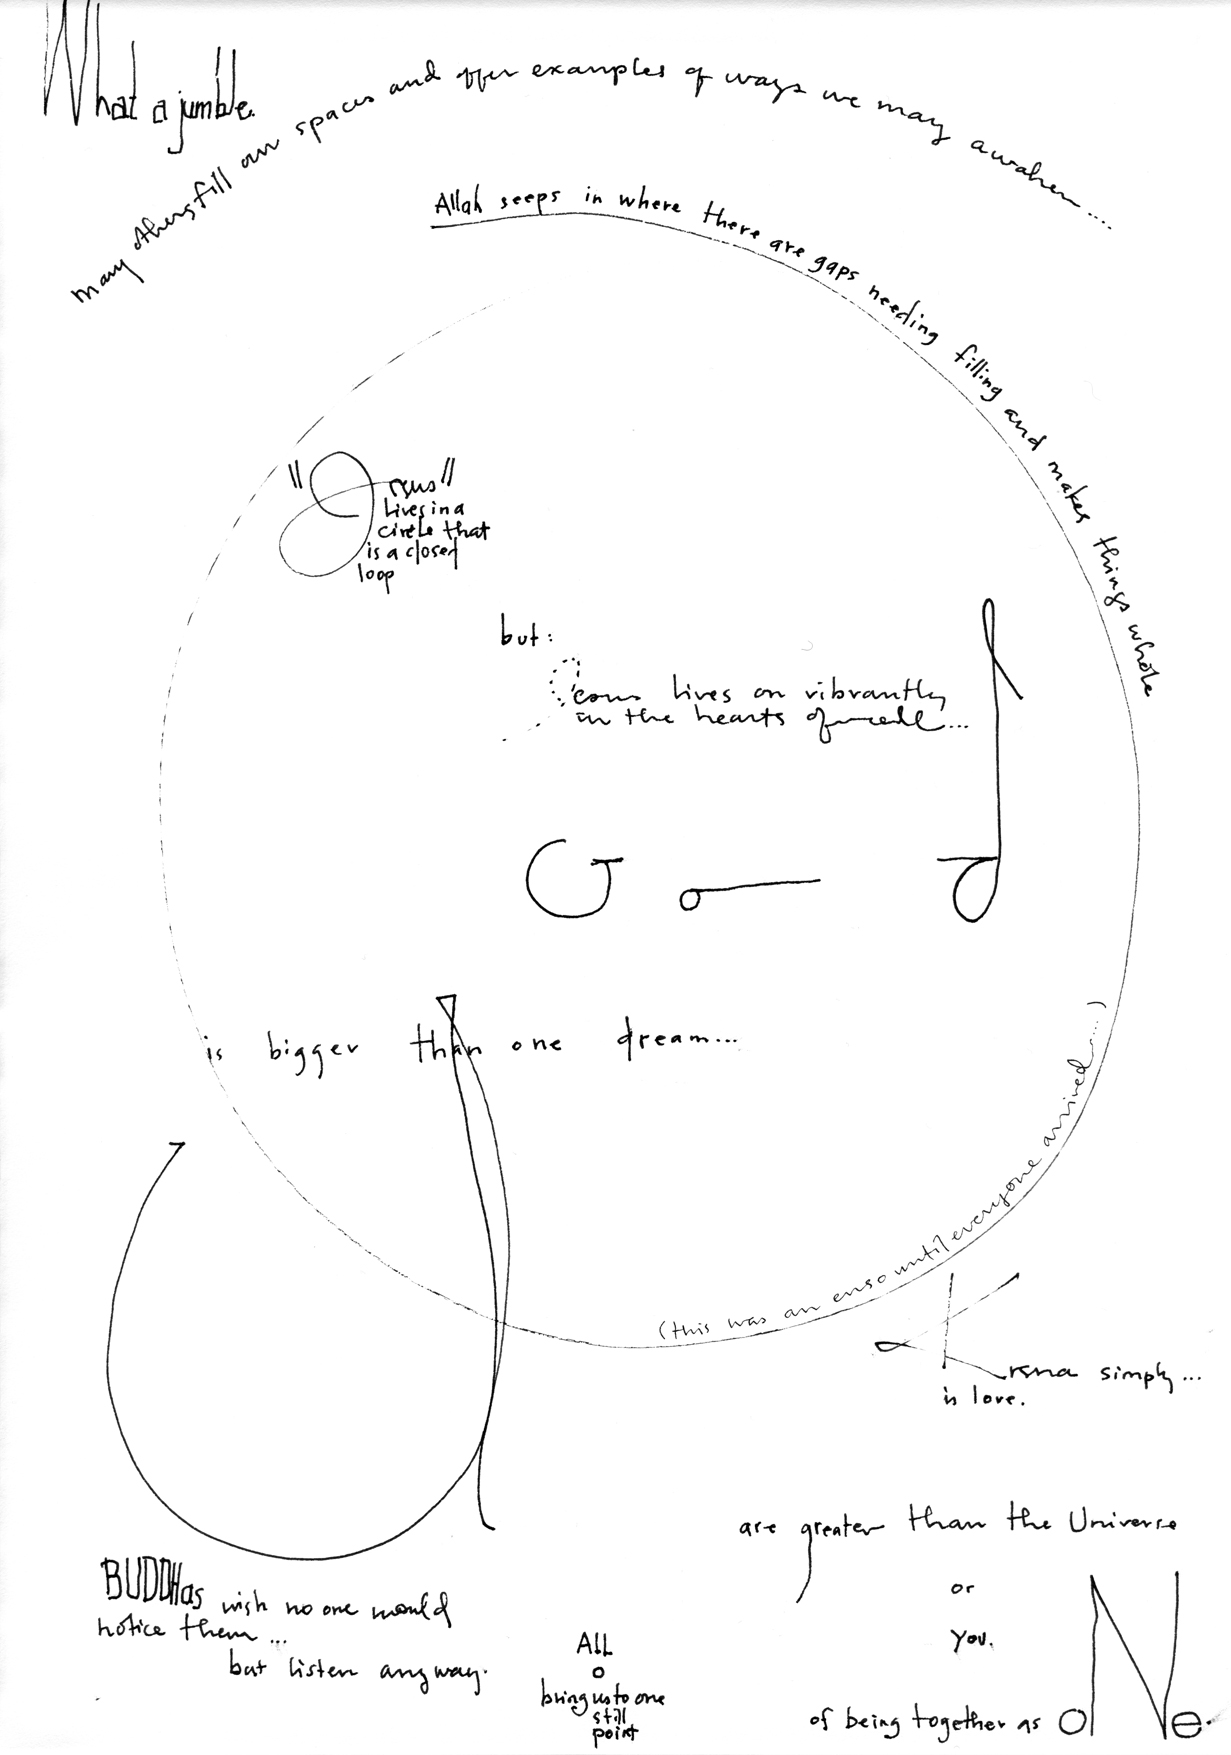 What a jumble.
many others fill our spaces and offer examples of ways we may awaken....
Allah seeps in where there are gaps needing filling and makes things whole
"Jesus"
Lives in a
circle that
is a closed
loop
but:
Jesus lives on vibrantly
in the hearts of well...
God
is bigger than one dream...
(this was an enso until everyone arrived....)
Krsna simply...
is love.
are greater than the Universe
or
you.
BUDDHas wish no one would
notice them...
but listen anyway.
ALL
o
bring us to one
still
point
of being together as oNe.